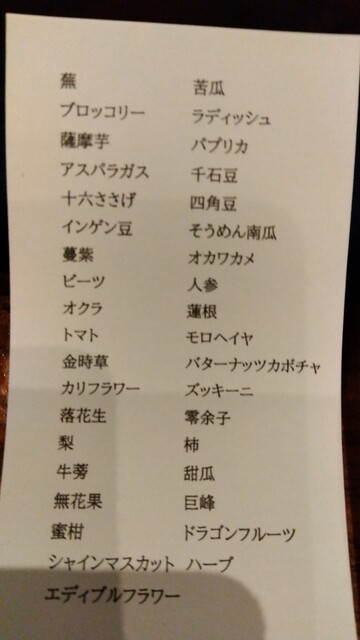 蕪 苦瓜
ブロッコリー ラディッシュ
薩摩芋 パプリカ
アスパラガス 千石豆
十六ささげ 四角豆
インゲン豆 そうめん南瓜
蔓紫 オカワカメ
ビーツ 人参
オクラ 蓮根
トマト モロヘイヤ
金時草 バターナッツカボチャ
カリフラワー ズッキーニ
落花生 零余子
梨 柿
牛蒡 甜瓜
無花果 巨峰
蜜柑 ドラゴンフルーツ
シャインマスカット ハーブ
エディブルフラワー